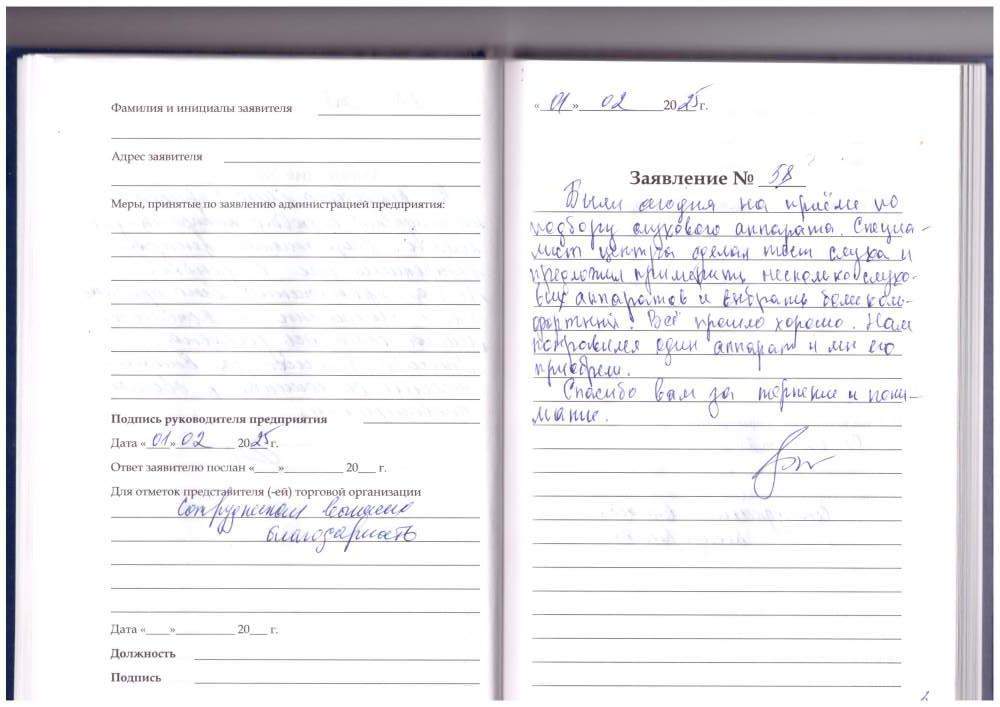 Фамилия и инициалы заявителя
Адрес заявителя
Меры, принятые по заявлению администрацией предприятия:
Подпись руководителя предприятия
Дата «01» 02 2025г.
Ответ заявителю послан «___»__________ 20___ г.
Для отметок представителя (-ей) торговой организации
Сотрудникам
благодарность
Дата «____»__________ 20___ г.
Должность
Подпись
«01» 02 2025г.
Заявление № 58
Были сегодня на приёме по
подбору слухового аппарата. Специа-
лист центра сделал тест слуха и
предложил примерить несколько слухо-
вых аппаратов и выбрать более ком-
фортный. Всё прошло хорошо. Нам
понравился один аппарат и мы его
приобрели.
Спасибо вам за терпение и пони-
мание.